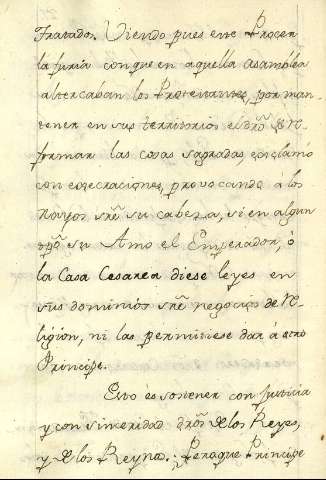 Tratados. Viendo pues este Procer
la furia con que en aquella asamblea
altercaban los Protestantes, por man-
tener en sus territorios el dro. de re-
formar las cosas sagradas, exclamó
con execraciones, provocando a los
rayos sre. su cabeza, si en algun
tpo. su Amo el Emperador, ó
la Casa Cesarea diese leyes en
sus dominios sre. negocios de re-
ligion, ni las permitiese dar á otro
Principe.
Esto es sostener con justicia
y con sinceridad dros. de los Reyes,
y de los Reynos. Peraque Principe